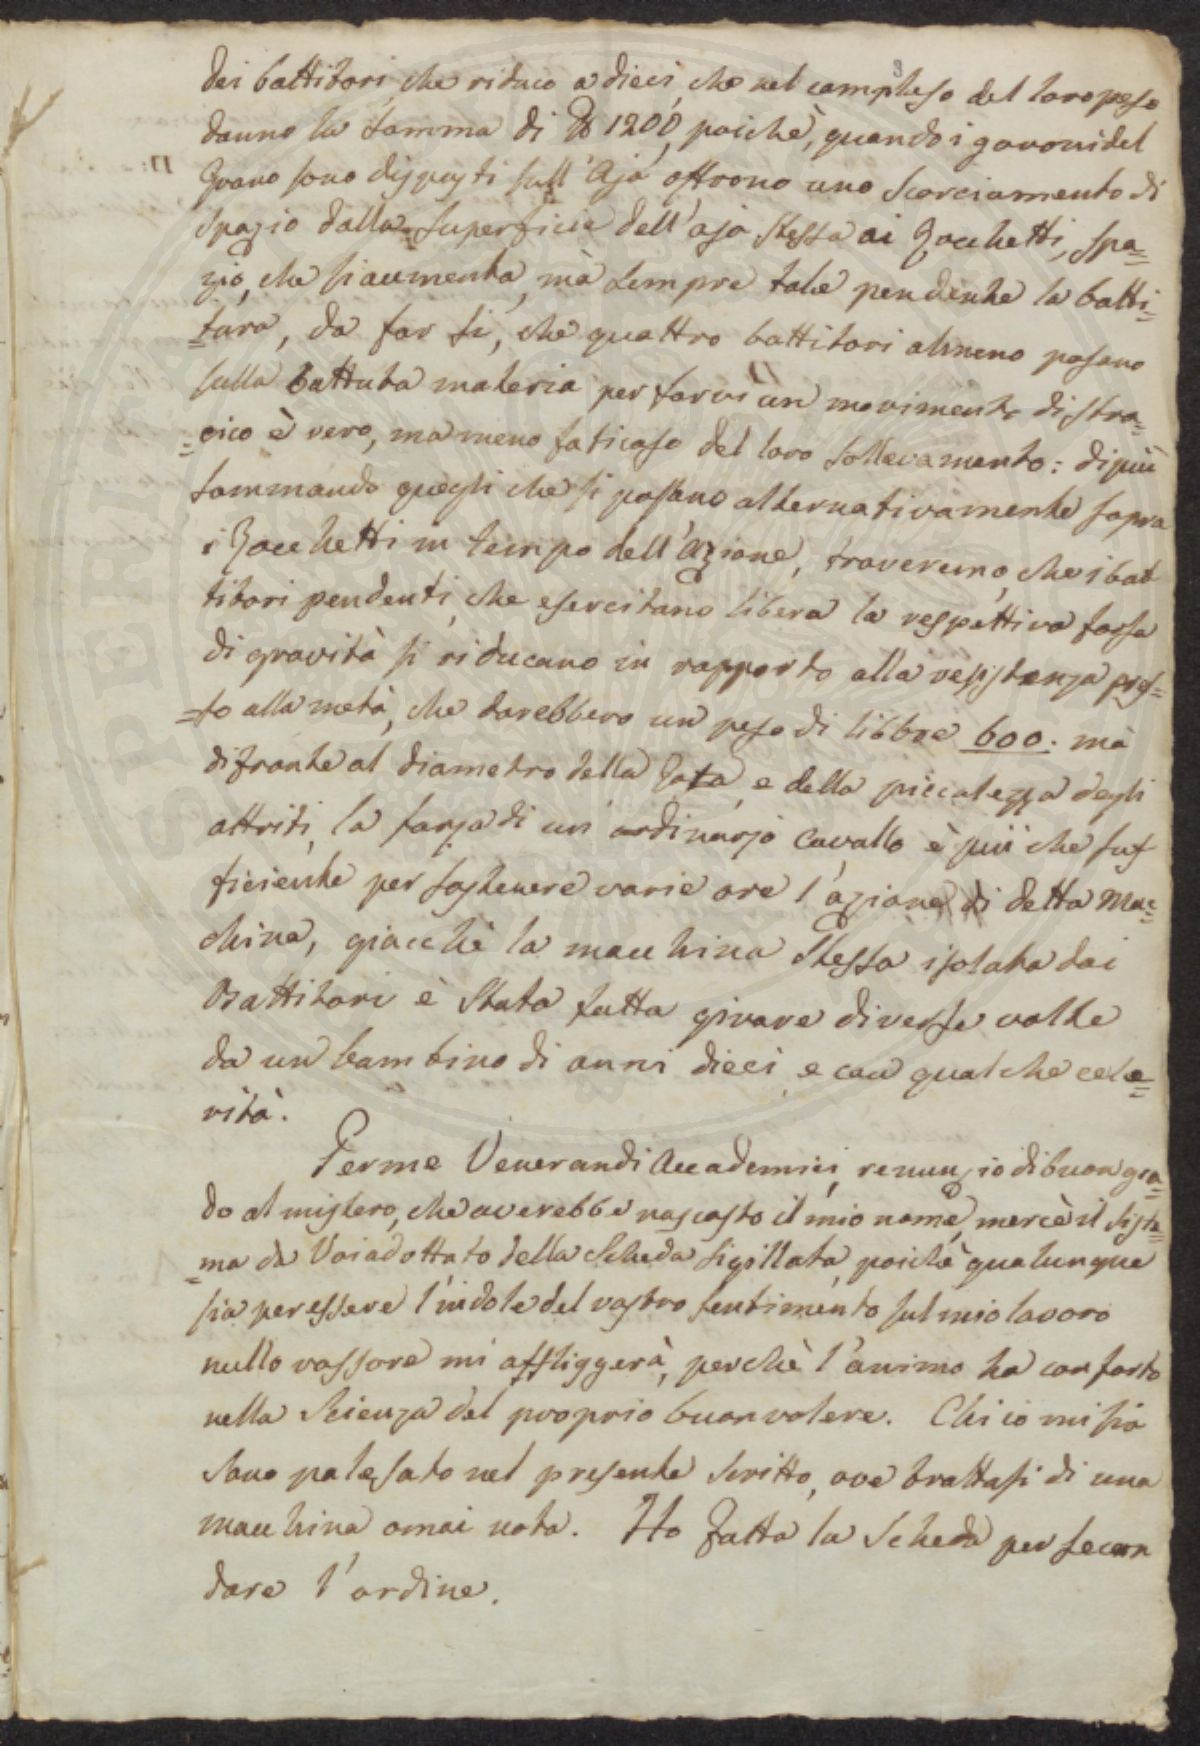 dei battitori, che riduco a dieci, che nel complesso del loro peso
danno la somma di ℔ 1200, poichè, quando i gavoni del
Grano sono disposti sull'Aja offrono uno scorciamento di
spazio dalla superficie dell'aja stessa ai Zocchetti, spa=
zio, che si aumenta, mà sempre tale pendente la batti=
=tura, da far sì, che quattro battitori almeno posano
sulla battuta materia per farvi un movimento di stra=
=cico è vero, ma meno faticoso del loro sollevamento: di più
sommando quegli che si posano alternativamente sopra
i Zocchetti in tempo dell'Azione, troveremo, che i bat
titori pendenti, che esercitano libera la respettiva forsa
di gravità si riducano in rapporto alla resistenza pres=
=to alla metà, che darebbero un peso di libbre 600. mà
difronte al diametro della Rota, e della piccolezza degli
attriti, la forza di un ordinario Cavallo è più che suf
ficiente per sostenere varie ore l'azione di detta Mac=
china, giacchè la macchina stessa isolata dai
Battitori è stata fatta girare diverse volte
da un bambino di anni dieci, e con qualche cele=
rità.
Per me Venerandi Accademici, renunzio di buon gra=
do al mistero, che averebbe nascosto il mio nome, mercè il siste=
=ma da Voi adottato della Scheda sigillata, poichè qualunque
sia per essere l'indole del vostro sentimento sul mio lavoro
nullo rossore mi affliggerà, perchè l'animo ha conforto
nella Scienza del proprio buon volere. Chi io mi sia
sono palesato nel presente scritto, ove trattasi di una
macchina omai nota. Ho fatta la Scheda per secon
dare l'ordine.